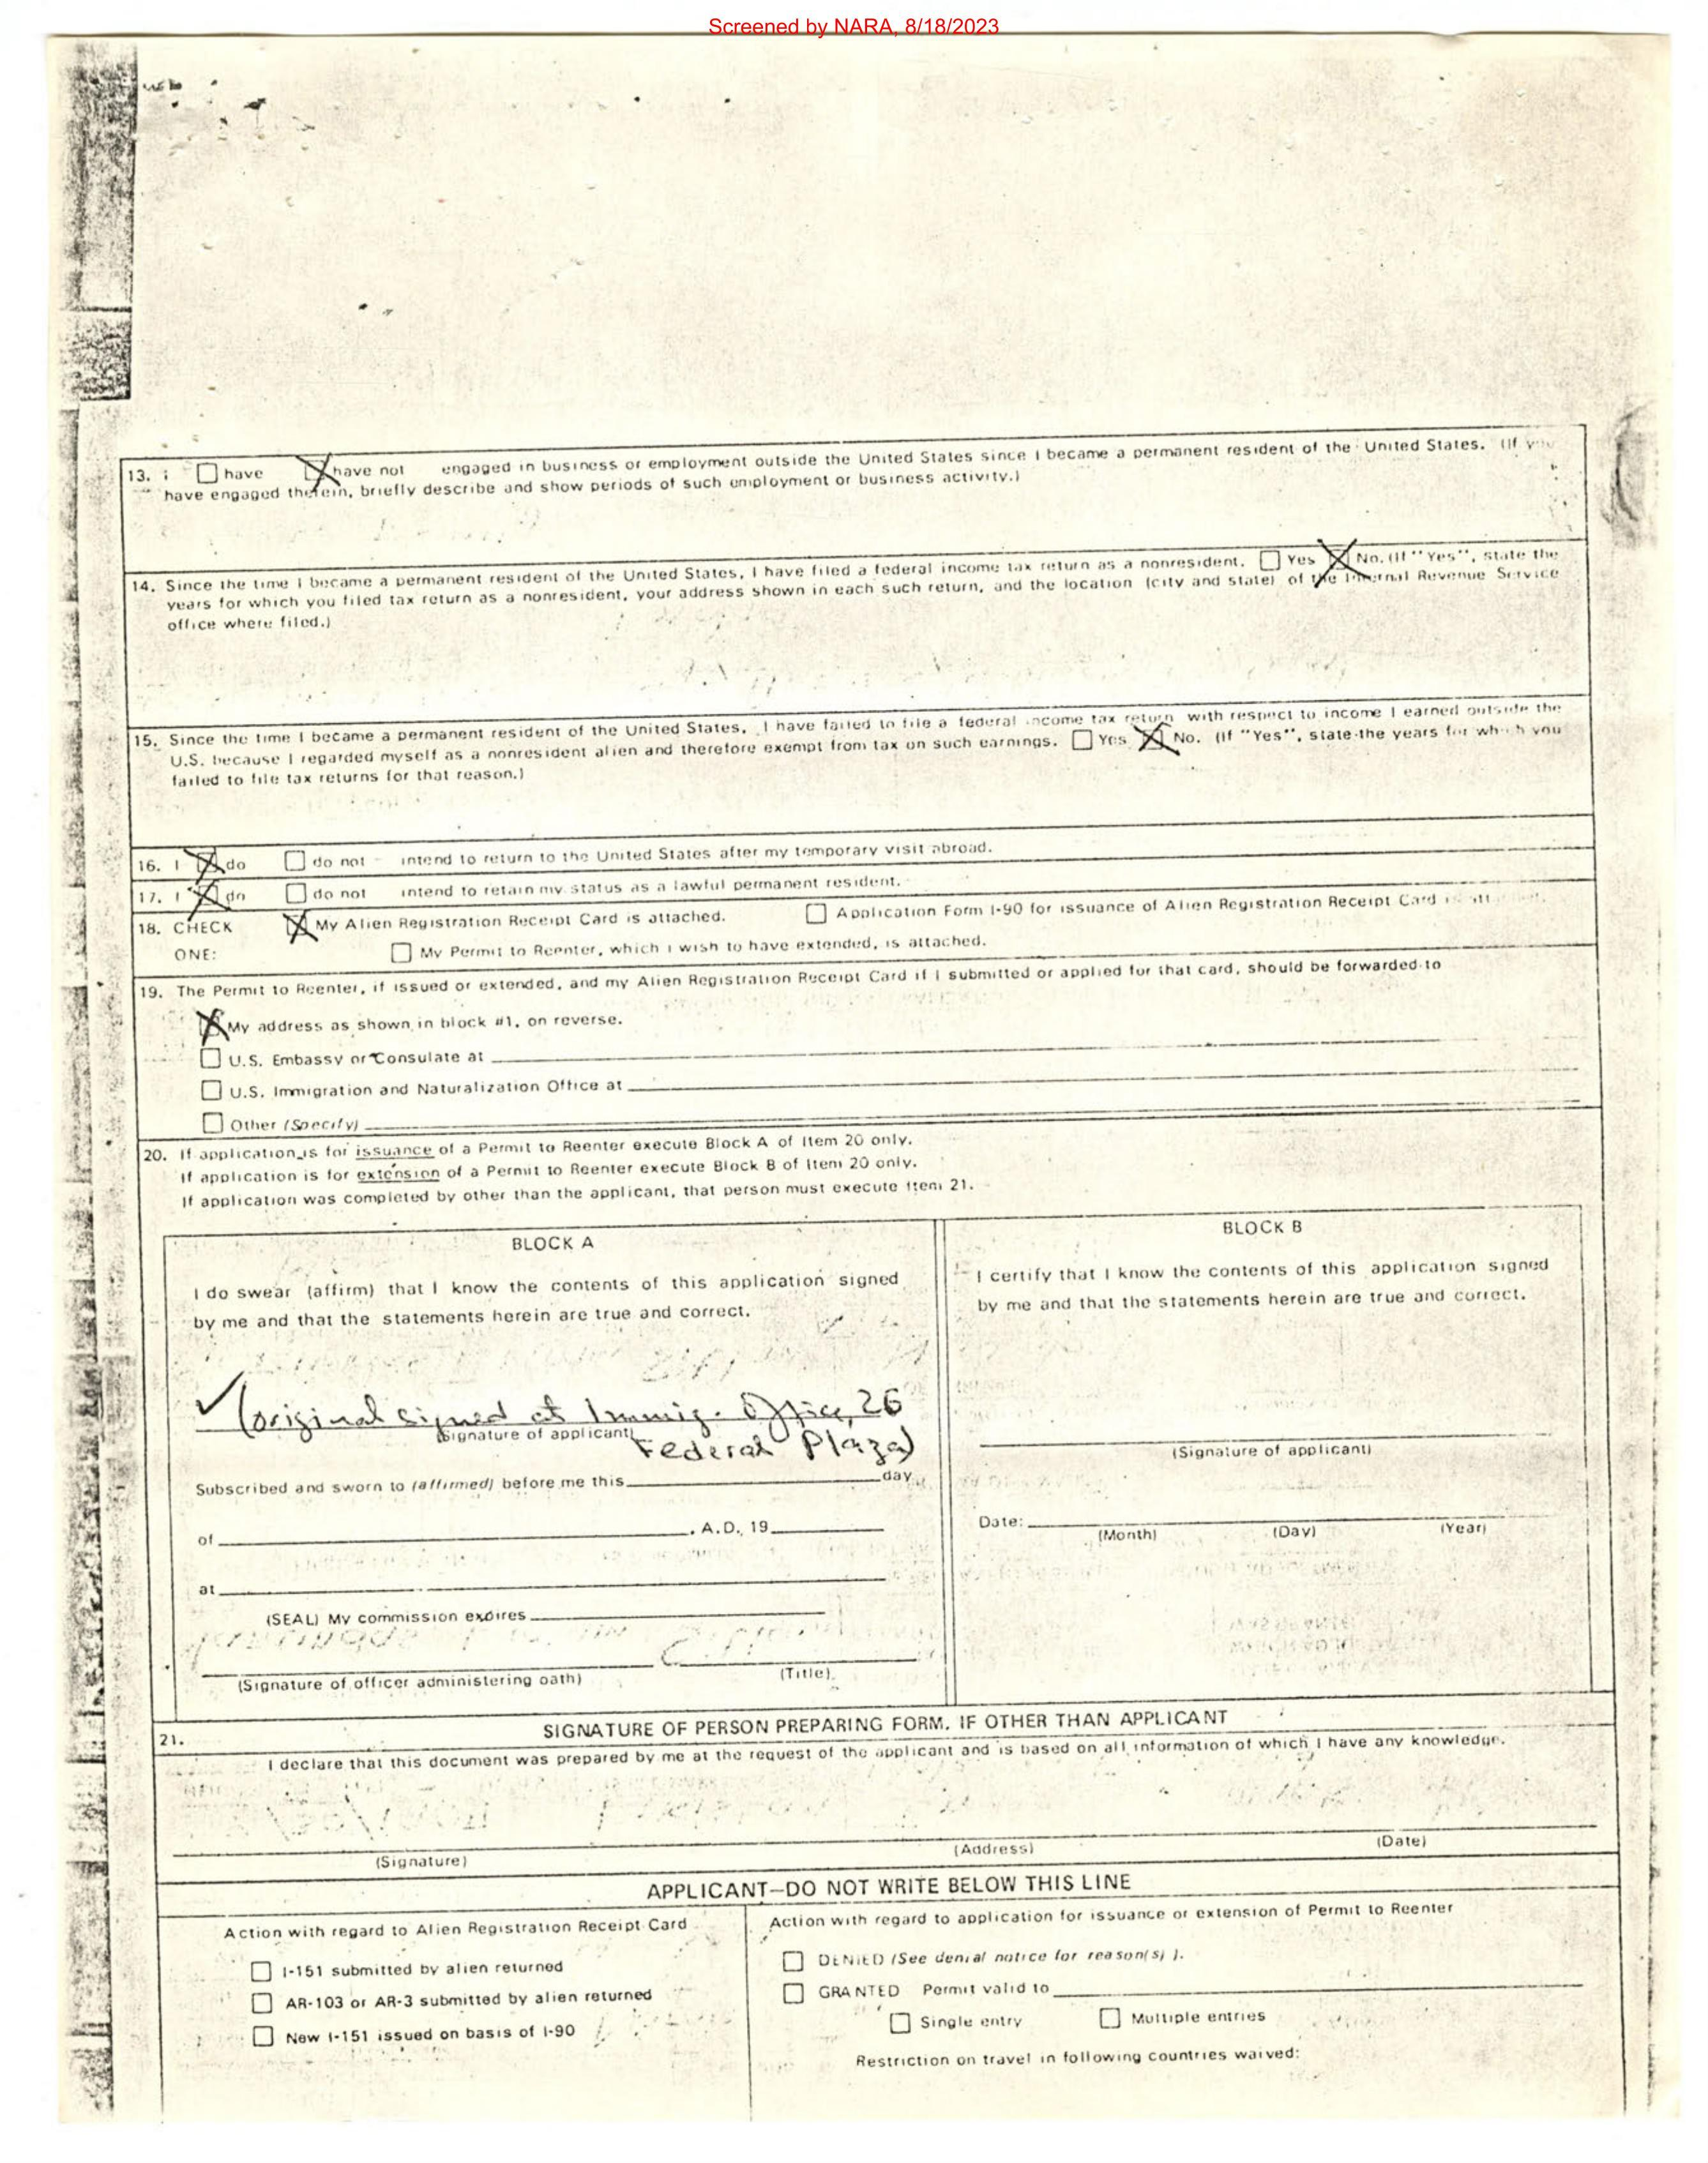 Screened by NARA, 8/18/2023
13. I have have not engaged in business or employment outside the United States since I became a permanent resident of the United States. (If you
have engaged therein, briefly describe and show periods of such employment or business activity.)
14. Since the time I became a permanent resident of the United States, I have filed a federal income tax return as a nonresident. Yes No. (If "Yes", state the
years for which you filed tax return as a nonresident, your address shown in each such return, and the location (city and state) of the Internal Revenue Service
office where filed.)
15. Since the time I became a permanent resident of the United States, I have failed to file a federal income tax return with respect to income I earned outside the
U.S. because I regarded myself as a nonresident alien and therefore exempt from tax on such earnings. Yes No. (If "Yes", state the years for which you
failed to file tax returns for that reason.)
16. I do do not intend to return to the United States after my temporary visit abroad.
17. I do do not intend to retain my status as a lawful permanent resident.
18. CHECK My Alien Registration Receipt Card is attached. Application Form I-90 for issuance of Alien Registration Receipt Card is attached.
ONE: My Permit to Reenter, which I wish to have extended, is attached.
19. The Permit to Reenter, if issued or extended, and my Alien Registration Receipt Card if I submitted or applied for that card, should be forwarded to
My address as shown in block #1, on reverse.
U.S. Embassy or Consulate at
U.S. Immigration and Naturalization Office at
Other (Specify)
20. If application is for issuance of a Permit to Reenter execute Block A of Item 20 only.
If application is for extension of a Permit to Reenter execute Block B of Item 20 only.
If application was completed by other than the applicant, that person must execute Item 21.
BLOCK A
I do swear (affirm) that I know the contents of this application signed
by me and that the statements herein are true and correct.
(original signed at Immig. Office, 26
(Signature of applicant)
Federal Plaza)
Subscribed and sworn to (affirmed) before me this day
of , A.D., 19
at
(SEAL) My commission expires
(Signature of officer administering oath) (Title)
BLOCK B
I certify that I know the contents of this application signed
by me and that the statements herein are true and correct.
(Signature of applicant)
Date:
(Month) (Day) (Year)
21. SIGNATURE OF PERSON PREPARING FORM, IF OTHER THAN APPLICANT
I declare that this document was prepared by me at the request of the applicant and is based on all information of which I have any knowledge.
(Signature) (Address) (Date)
APPLICANT—DO NOT WRITE BELOW THIS LINE
Action with regard to Alien Registration Receipt Card
I-151 submitted by alien returned
AR-103 or AR-3 submitted by alien returned
New I-151 issued on basis of I-90
Action with regard to application for issuance or extension of Permit to Reenter
DENIED (See denial notice for reason(s) ).
GRANTED Permit valid to
Single entry Multiple entries
Restriction on travel in following countries waived: